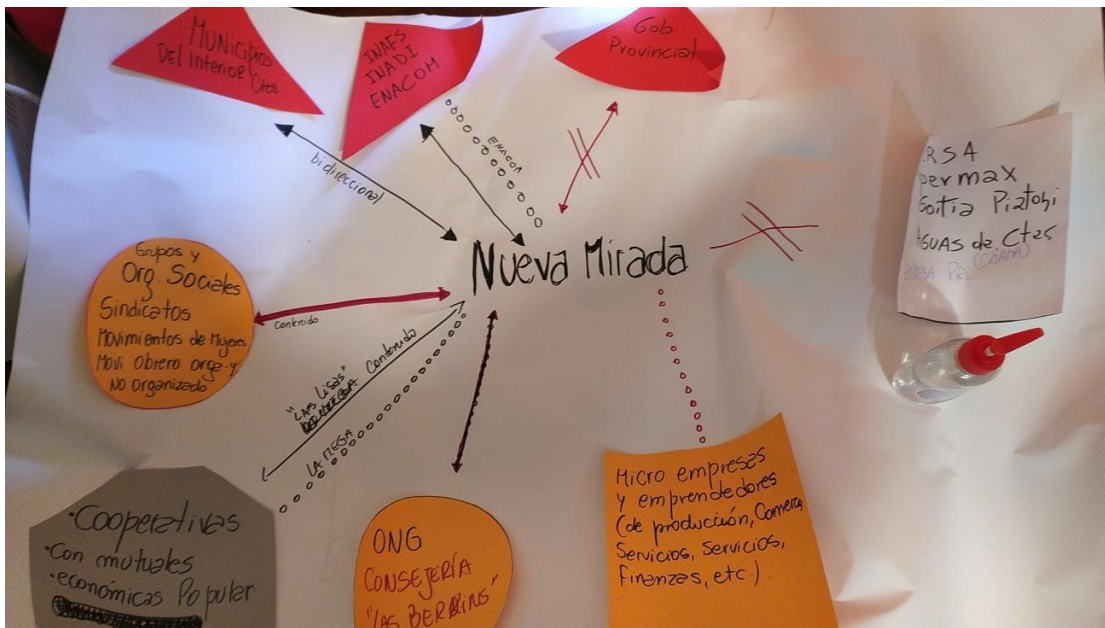 Municipios
Del Interior Ctes
INAES
INADI
ENACOM
Gob
Provincial
bidireccional
ENACOM
Nueva Mirada
RSA
permax
Goitia Piatohi
Aguas de Ctes
Grupos y
Org. Sociales
Sindicatos
Movimientos de Mujeres
Movi Obrero orga y
NO organizado
Contenido
"LAS Lisas"
Contenido
LA MEGA
·Cooperativas
·Con mutuales
·económicas Popular
ONG
CONSEJERÍA
"LAS BERBINS"
Micro empresas
y emprendedores
(de producción, Comercio,
Servicios, Servicios,
Finanzas, etc.).